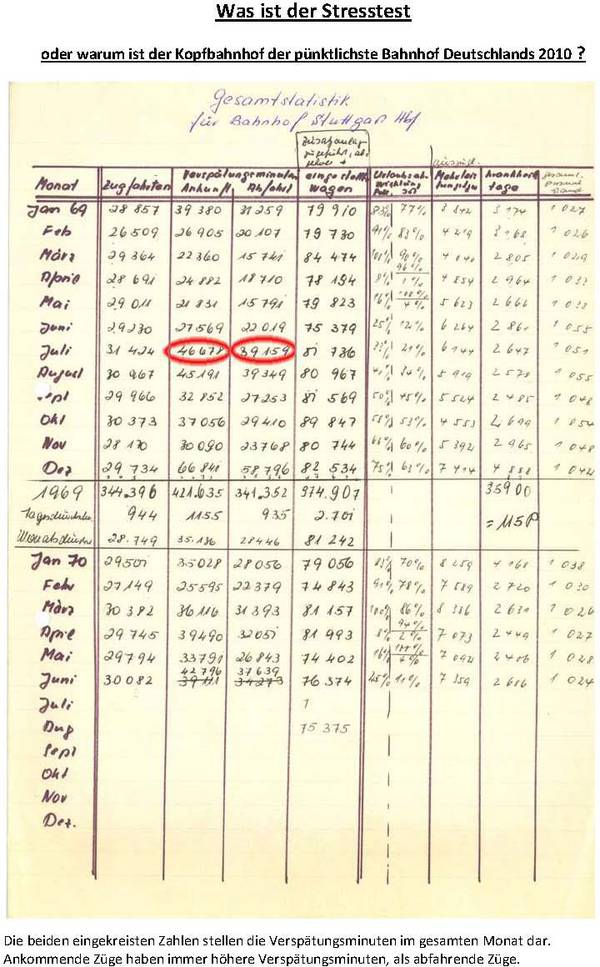 Was ist der Stresstest
oder warum ist der Kopfbahnhof der pünktlichste Bahnhof Deutschlands 2010 ?
Gesamtstatistik
für Bahnhof Stuttgart Hbf
Verspätungsminuten
Monat Zugfahrten Ankunft Abfahrt wagen tage
Jan 69 28 857 39 380 31 259 79 910 83% 77% 1 027
Feb 26 509 26 905 20 107 79 730 91% 83% 4 219 1 026
März 29 364 22 360 15 741 84 474 100% 2 805 1 029
April 28 691 24 882 18 710 78 194 4 854 2 964
Mai 29 011 21 831 15 791 79 823 16% 5 623 2 666
Juni 29230 27569 22019 75 379 25% 12% 6 264
Juli 31 424 46678 39159 81 736 21% 2 647 1 051
August 30 967 45191 39349 80 967 5 919 2 578 1 055
Sept 29 966 32 852 27253 81 569 50% 45% 5 524 1 048
Okt 30 373 37 056 29 410 89 847 53% 1 054
Nov 28 170 30 090 23768 80 744 60% 5 392 2 965 1 048
Dez 29 734 66 841 58,796 82 534 75% 63% 1 042
1969 344.396 421.635 341.352 974.907 35900
944 1155 935 2.701 = 115P
28.749 35.136 28446 81 242
Jan 70 29501 35028 28056 79 056 83% 70% 8 259 4 168 1 038
Febr 27149 25595 22379 74 843 78% 7 589 2 720 1 030
März 30 382 36 116 31 393 81 157 100% 86% 8 386 2 631 1 026
April 29 745 39490 32051 81 993 7 073 2 449 1 027
Mai 29794 33791 26 843 74 402 16% 1 028
42 796 37639
Juni 30 082 76 374 25% 11% 7 359 2 686 1 024
Juli 1
Aug 75 375
Sept
Okt
Nov
Dez.
Die beiden eingekreisten Zahlen stellen die Verspätungsminuten im gesamten Monat dar.
Ankommende Züge haben immer höhere Verspätungsminuten, als abfahrende Züge.